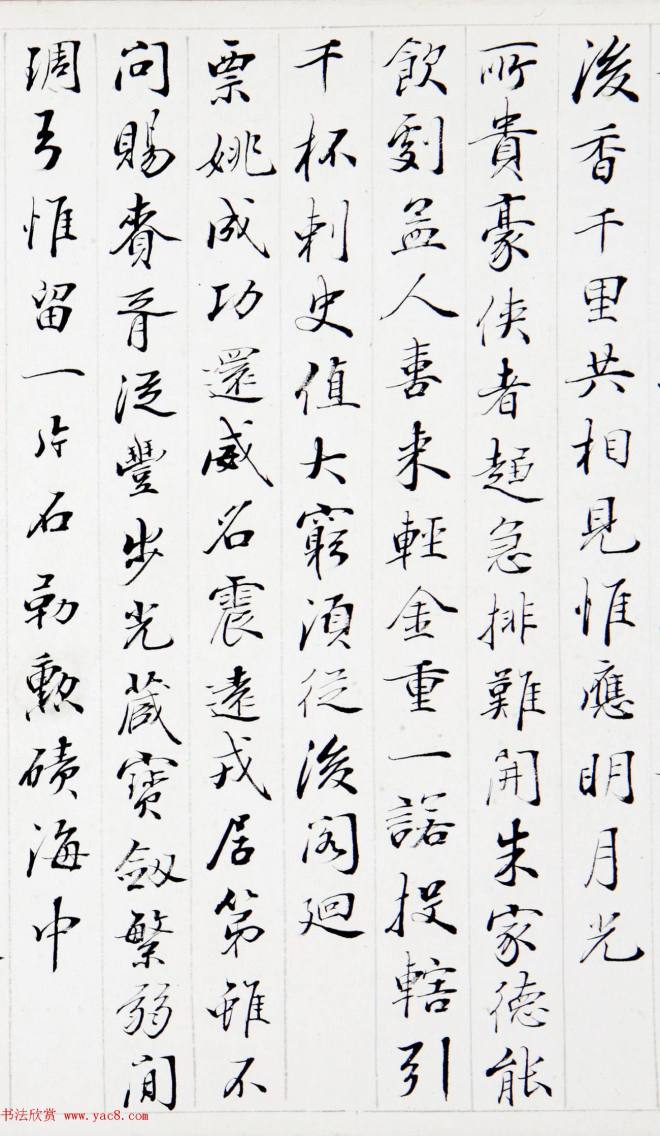 後香千里共相見惟應明月光
所貴豪俠者趨急排難開朱家德能
飲劇孟人喜來輕金重一諾投轄引
千杯刺史值大窮須從後閣廻
票姚成功還威名震遠戎居第雖不
問賜賚胥從豐步光蔵寶劔繁弱間
琱弓惟留一片石勒勲磧海中
书法欣赏 www.yac8.com